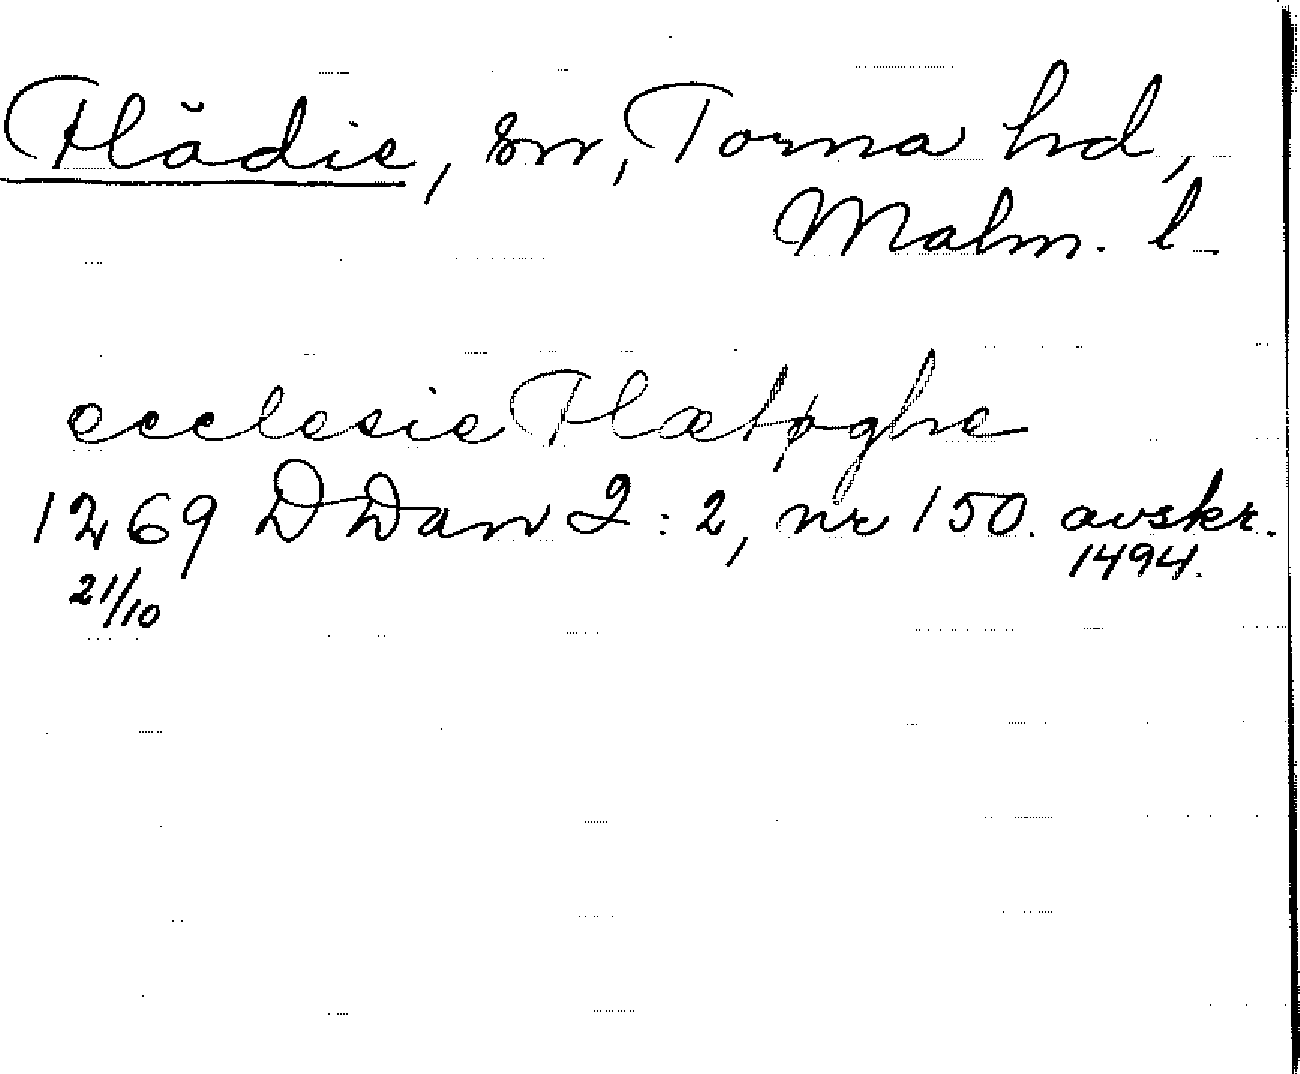 Flädie, sn, Torna hd,
Malm. l.
ecclesie Flætøghe
1269 DDan 2:2, nr 150. avskr.
21/10 1494.